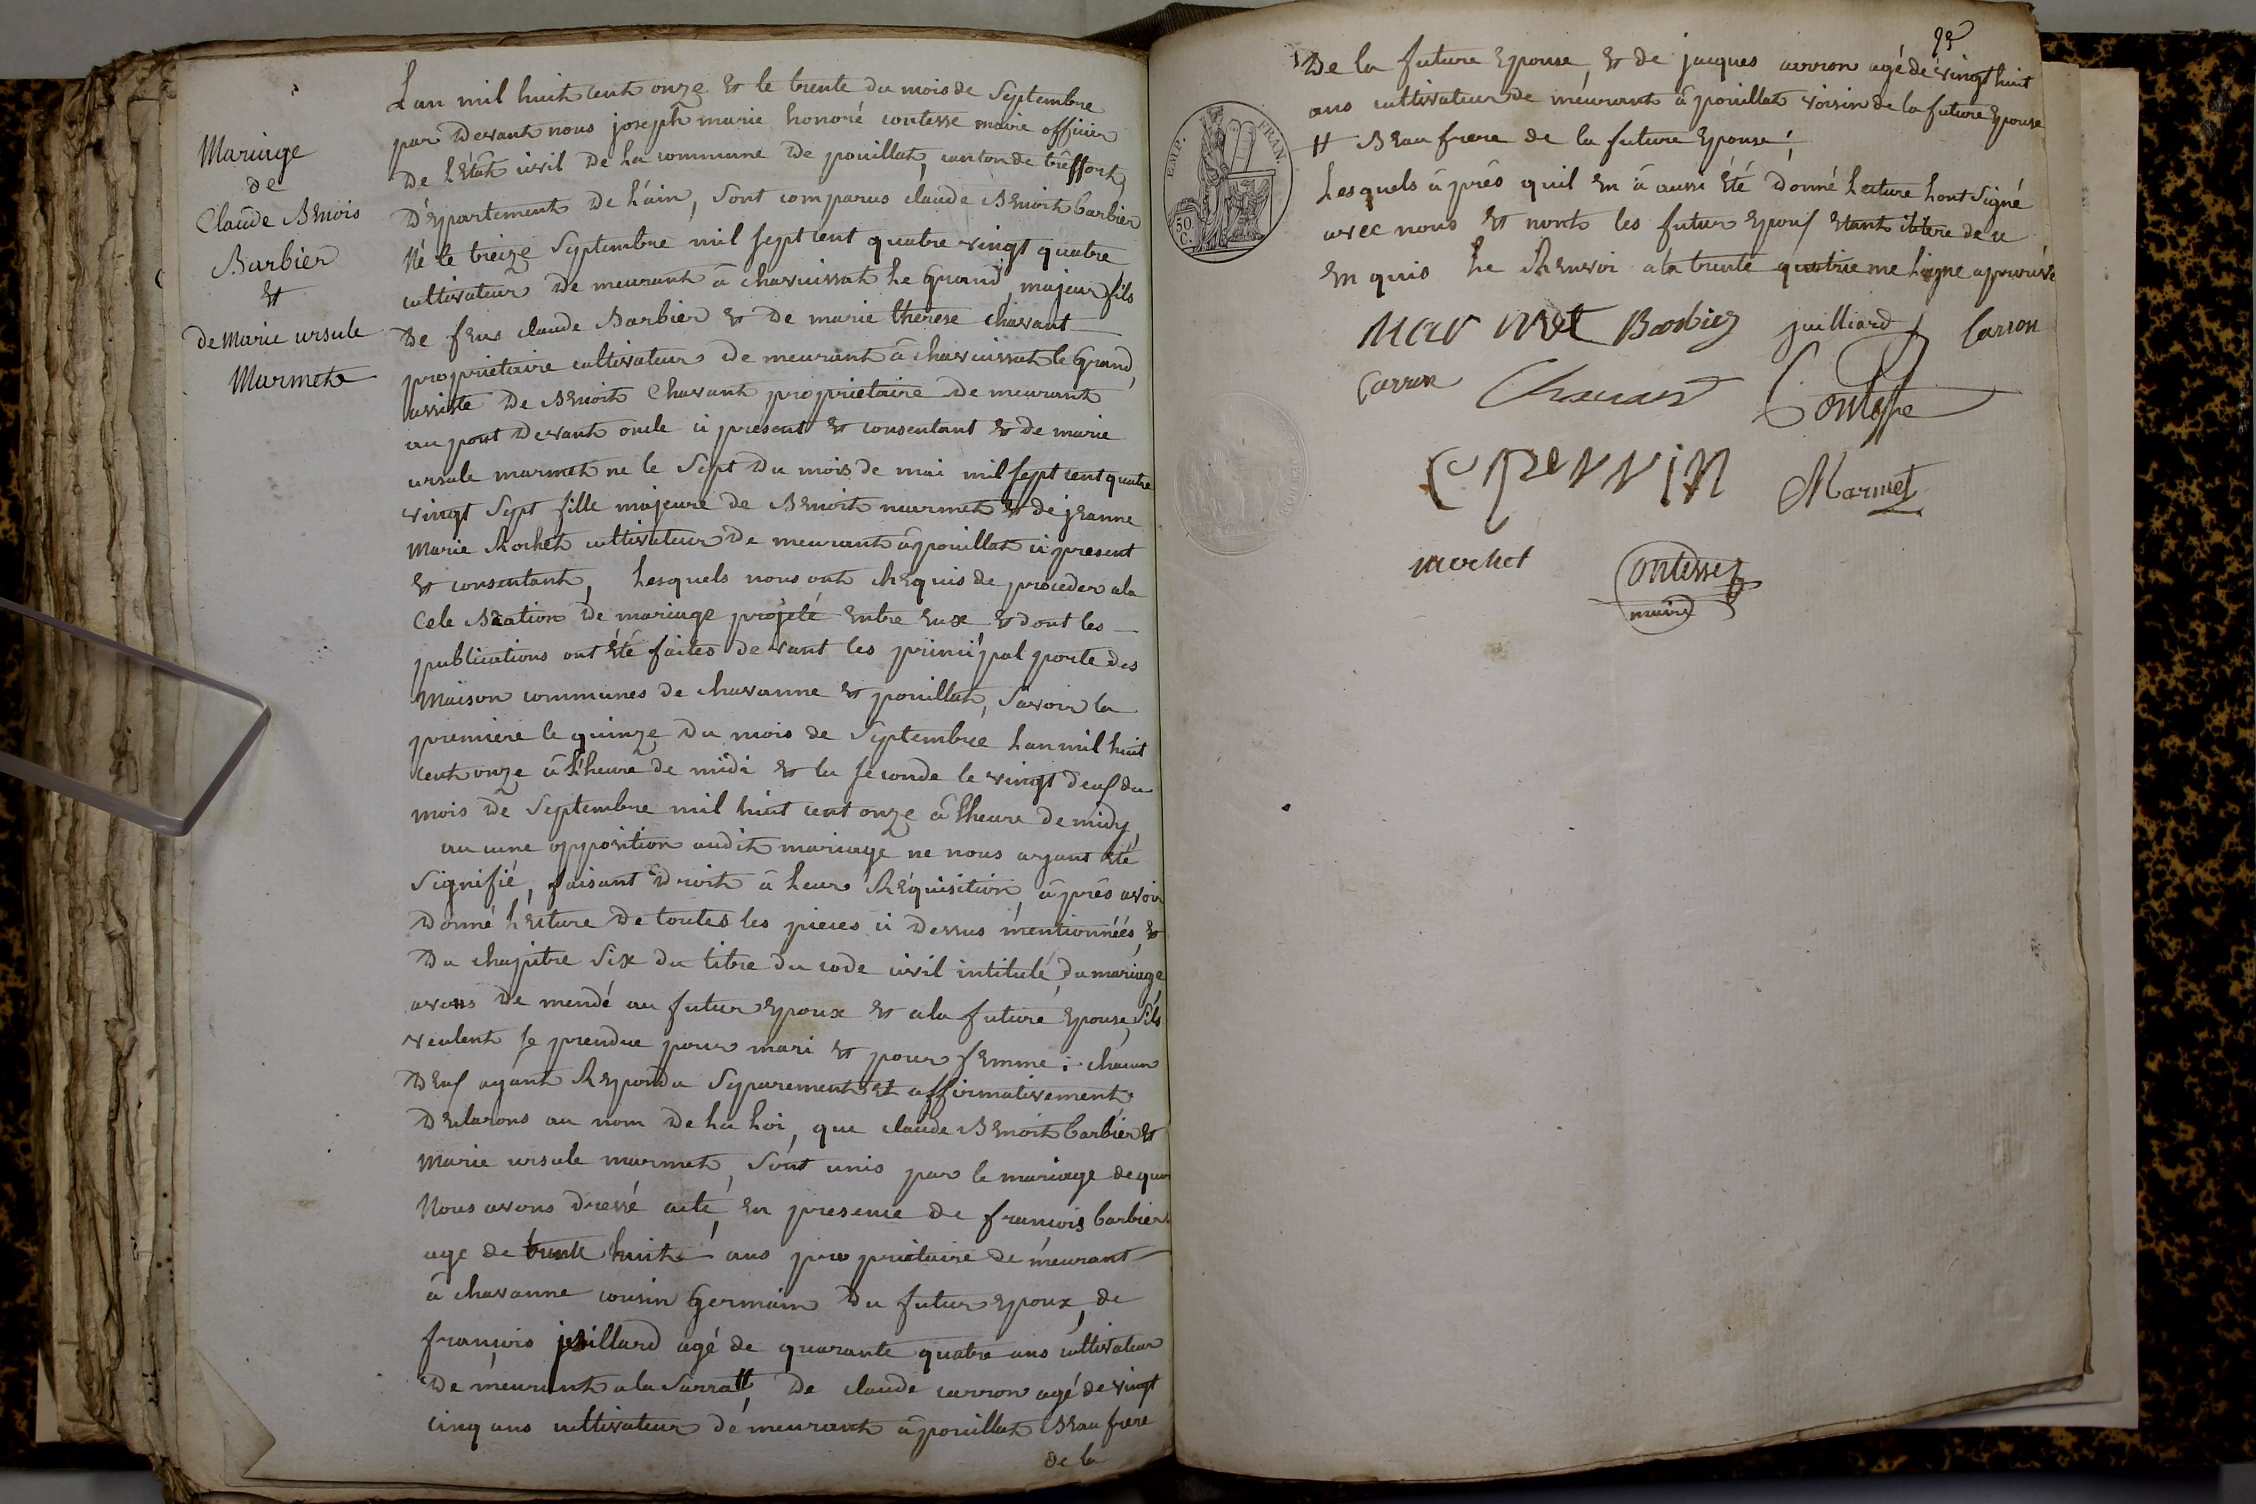 Mariage
de
Claude Benois
Barbier
et
de Marie ursule
Marmet
Lan mil huit cent onze et le trente du mois de Septembre
par Devant nous joseph marie honoré contesse maire officier
De L'état civil De La commune De pouillat, canton de treffort,
Département De L'ain, Sont comparus claude Benoit barbier
Né le treize Septembre mil sept cent quatre vingt quatre
cultivateur De meurant à chavuissiat Le Grand, majeur fils
De feus claude Barbier et De marie therese chavant
propriétaire cultivateur De meurant à chavuissiat le Grand,
assisté De Benoit Chavant propriétaire De meurant
au pont Devant oncle ci present et consentant et de marie
ursule marmet né le Sept Du mois de mai mil sept cent quatre
vingt Sept fille majeure de Benoit marmet et de jeanne
Marie Rochet cultivateur De meurant à pouillat ci present
et consentant, Lesquels nous ont Requis de proceder a la
Cele Bration De mariage projeté Entre Eux et dont les
publications ont été faites devant les principal porte des
Maison communes de chavanne et pouillat, Savoir la
premiere le quinze Du mois de Septembre Lan mil huit
cent onze à L'heure de midi et la seconde le vingt deux du
mois De Septembre mil huit cent onze à L'heure De midy,
aucune opposition audit mariage ne nous ayant été
Signifié, faisant Droit à Leur Réquisition, àprès avoir
Donné Lecture De toutes les pieces ci Dessus mentionnéés, et
Du chapitre Six du titre du code civil intitulé, Du mariage,
avons De mendé au futur Epoux et a la future Epouse, S'ils
veulent se prendre pour mari et pour femme : chacun
Deux ayant Repondu Separement Et affirmativement,
Declarons au nom De La Loi, que claude Benoit barbier et
Marie ursule marmet, Sont unis par le mariage de quoi
Nous avons Dressé acte, En presence de françois barbier
age de trente huit ans pro priétaire de meurant
à chavanne cousin Germain Du futur Epoux, de
françois juillard agé de quarante quatre ans cultivateur
De meurant a la Sarra#, De claude carron agé de vingt
cinq ans cultivateur de meurant à pouillat Beau frere
de la
95
De la future Epouse, et de jacques carron agé de vingt huit
ans cultivateur de meurant à pouillat voisin de la future Epouse
# Beau frere de la future Epouse!
Lesquels àprès quil En à aussi été donné Lecture Lont Signé
avec nous et nont les futur Epoux Etant illitere de ce
En quis Le Renvoi a la trente quatrie me Ligne approuvé
EMP. FRAN.
50 C.
Mar met Barbier juilliard Carron
Carron Chavant Contesse
C Perrin Marmet
Contesse
maire